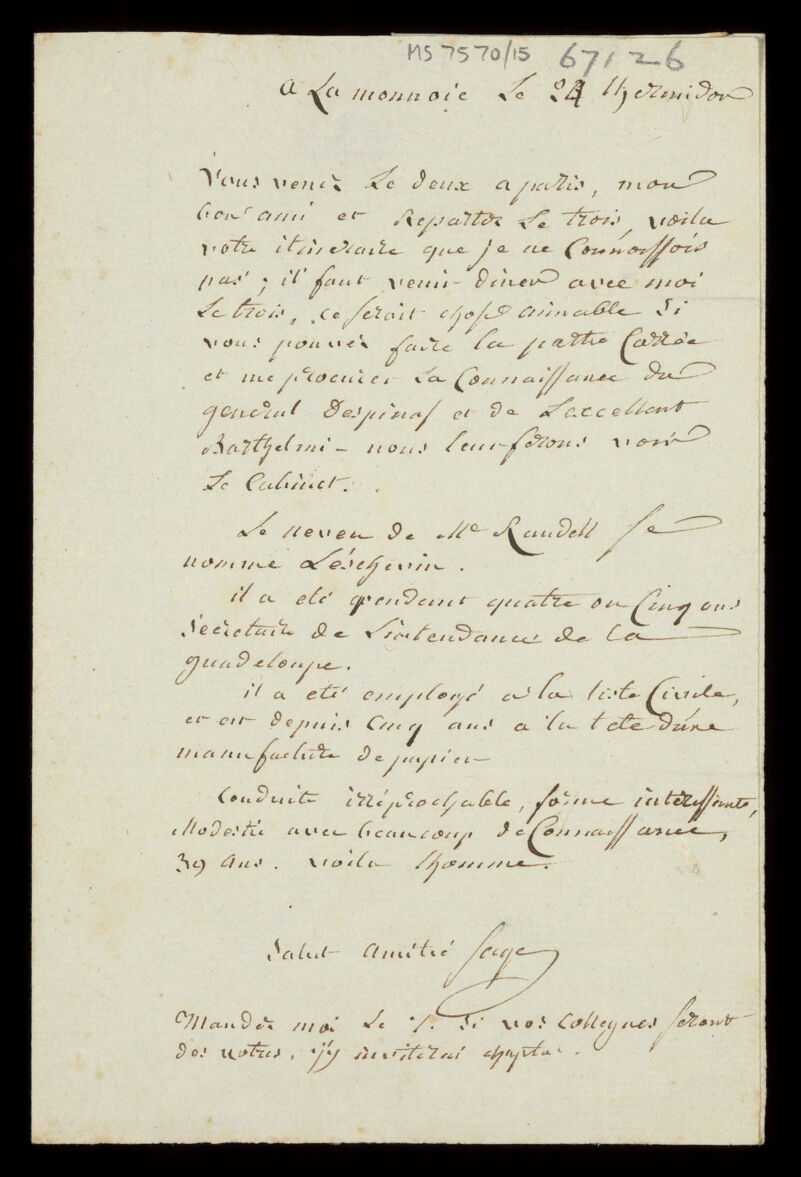 MS 7570/15 67126
a La monnoie Le 24 thermidor
Vous venez Le deux a paris, mon
bon ami et Repartez Le trois, voila
votre itineraire que je ne Connoissois
pas; il faut venir diner avec moi
Le trois, ce seroit chose aimable Si
vous pouviez faire la partie Carrée
et me procurer La Connaissance du
general Despinas et de Lexcellent
Barthelmi - nous leur ferons voir
Le Cabinet.
Le neveu de Me Randell se
nomme Léschevin.
il a eté pendant quatre ou Cinq ans
Secretaire de Lintendance de la
guadeloupe.
il a eté employé a la liste Civile,
et est depuis Cinq ans a la tete dune
manufacture de papier
Conduite irréprochable, forme interessante,
Modestie avec beaucoup de Connaissance,
39 ans. voila lhomme.
Salut Amitié Sage
Mandez moi Le 1. Si vos Collegues seront
des notres, j'y inviterai chaptal.